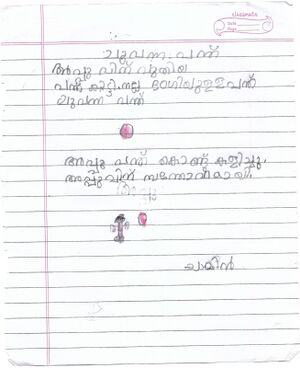 classmate
Date
Page
ചുവന്ന പന്ത്
അപ്പു വിന് പുതിയ
പന്ത് കിട്ടി. നല്ല ഭംഗിയുള്ള പന്ത്
ചുവന്ന പന്ത്
അപ്പു പന്ത് കൊണ്ട് കളിച്ചു.
അപ്പുവിന് സന്തോഷമായി.